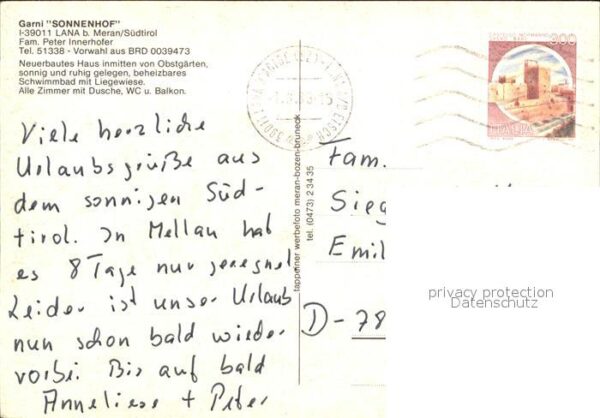 Garni "SONNENHOF"
I-39011 LANA b. Meran/Südtirol
Fam. Peter Innerhofer
Tel. 51338 - Vorwahl aus BRD 0039473
Neuerbautes Haus inmitten von Obstgärten,
sonnig und ruhig gelegen, beheizbares
Schwimmbad mit Liegewiese.
Alle Zimmer mit Dusche, WC u. Balkon.
Viele herzliche
Urlaubsgrüße aus
dem sonnigen Süd-
tirol. In Mellau hat
es 8 Tage nur geregnet
Leider ist unser Urlaub
nun schon bald wieder
vorbei. Bis auf bald
Anneliese + Peter
tappeiner werbefoto meran-bozen-bruneck
tel. (0473) 2 34 35
300
ITALIA
39011 LANA
Fam.
Sieg
Emil
D-78
privacy protection
Datenschutz